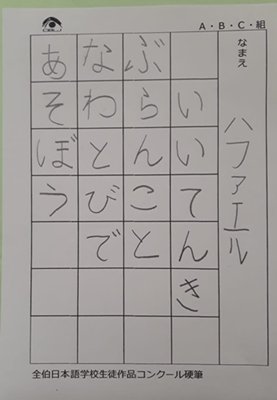 A・B・C・組
なまえ
ハファエル
いいてんき
ぶらんこと
なわとびで
あそぼう
全伯日本語学校生徒作品コンクール硬筆